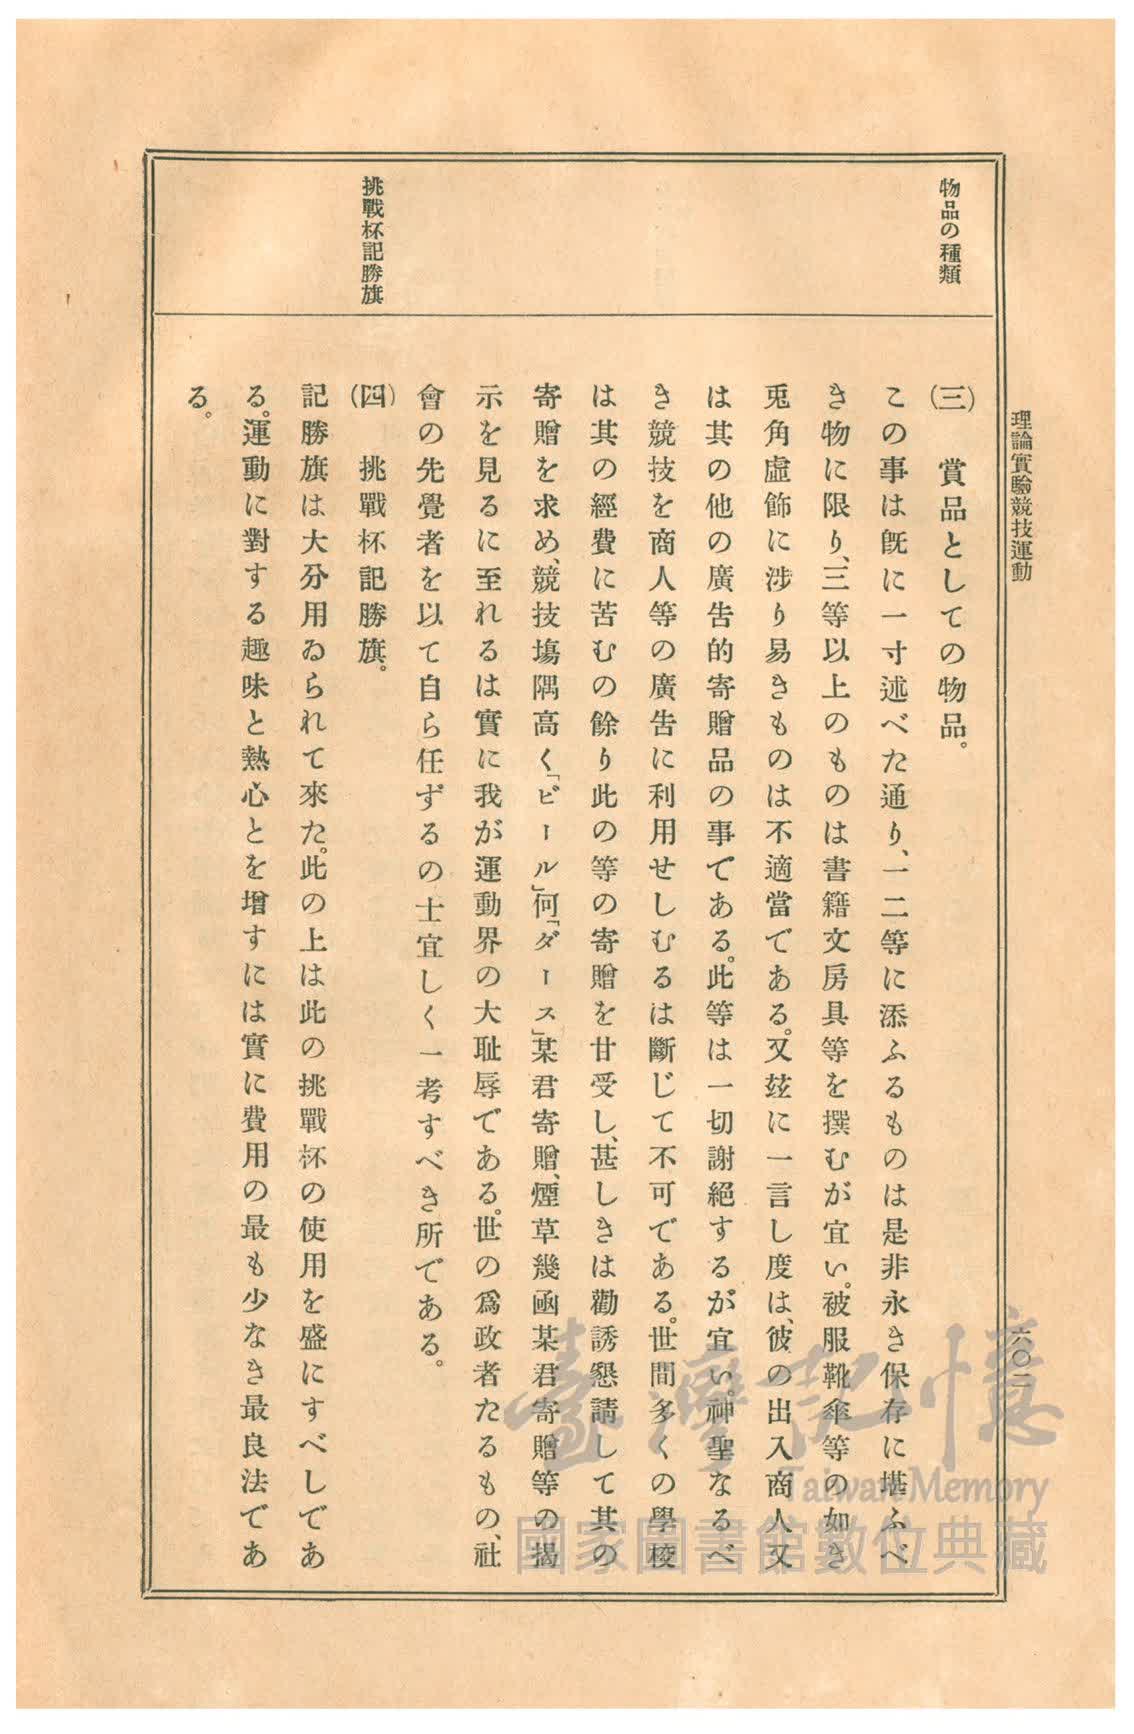 理論實驗競技運動
六〇二
物品の種類
(三)　賞品としての物品。
この事は既に一寸述べた通り、一二等に添ふるものは是非永き保存に堪ふべ
き物に限り、三等以上のものは書籍文房具等を撰むが宜い。被服靴傘等の如き
兎角虛飾に涉り易きものは不適當である。又玆に一言し度は、彼の出入商人又
は其の他の廣告的寄贈品の事である。此等は一切謝絕するが宜い。神聖なるべ
き競技を商人等の廣告に利用せしむるは斷じて不可である。世間多くの學校
は其の經費に苦むの餘り此の等の寄贈を甘受し、甚しきは勸誘懇請して其の
寄贈を求め、競技塲隅高く「ビール」何「ダース」某君寄贈、煙草幾凾某君寄贈等の揭
示を見るに至れるは實に我が運動界の大耻辱である。世の爲政者たるもの、社
會の先覺者を以て自ら任ずるの士宜しく一考すべき所である。
挑戰杯記勝旗
(四)　挑戰杯記勝旗。
記勝旗は大分用ゐられて來た。此の上は此の挑戰杯の使用を盛にすべしであ
る。運動に對する趣味と熱心とを增すには實に費用の最も少なき最良法であ
る。
臺灣記憶
Taiwan Memory
國家圖書館數位典藏